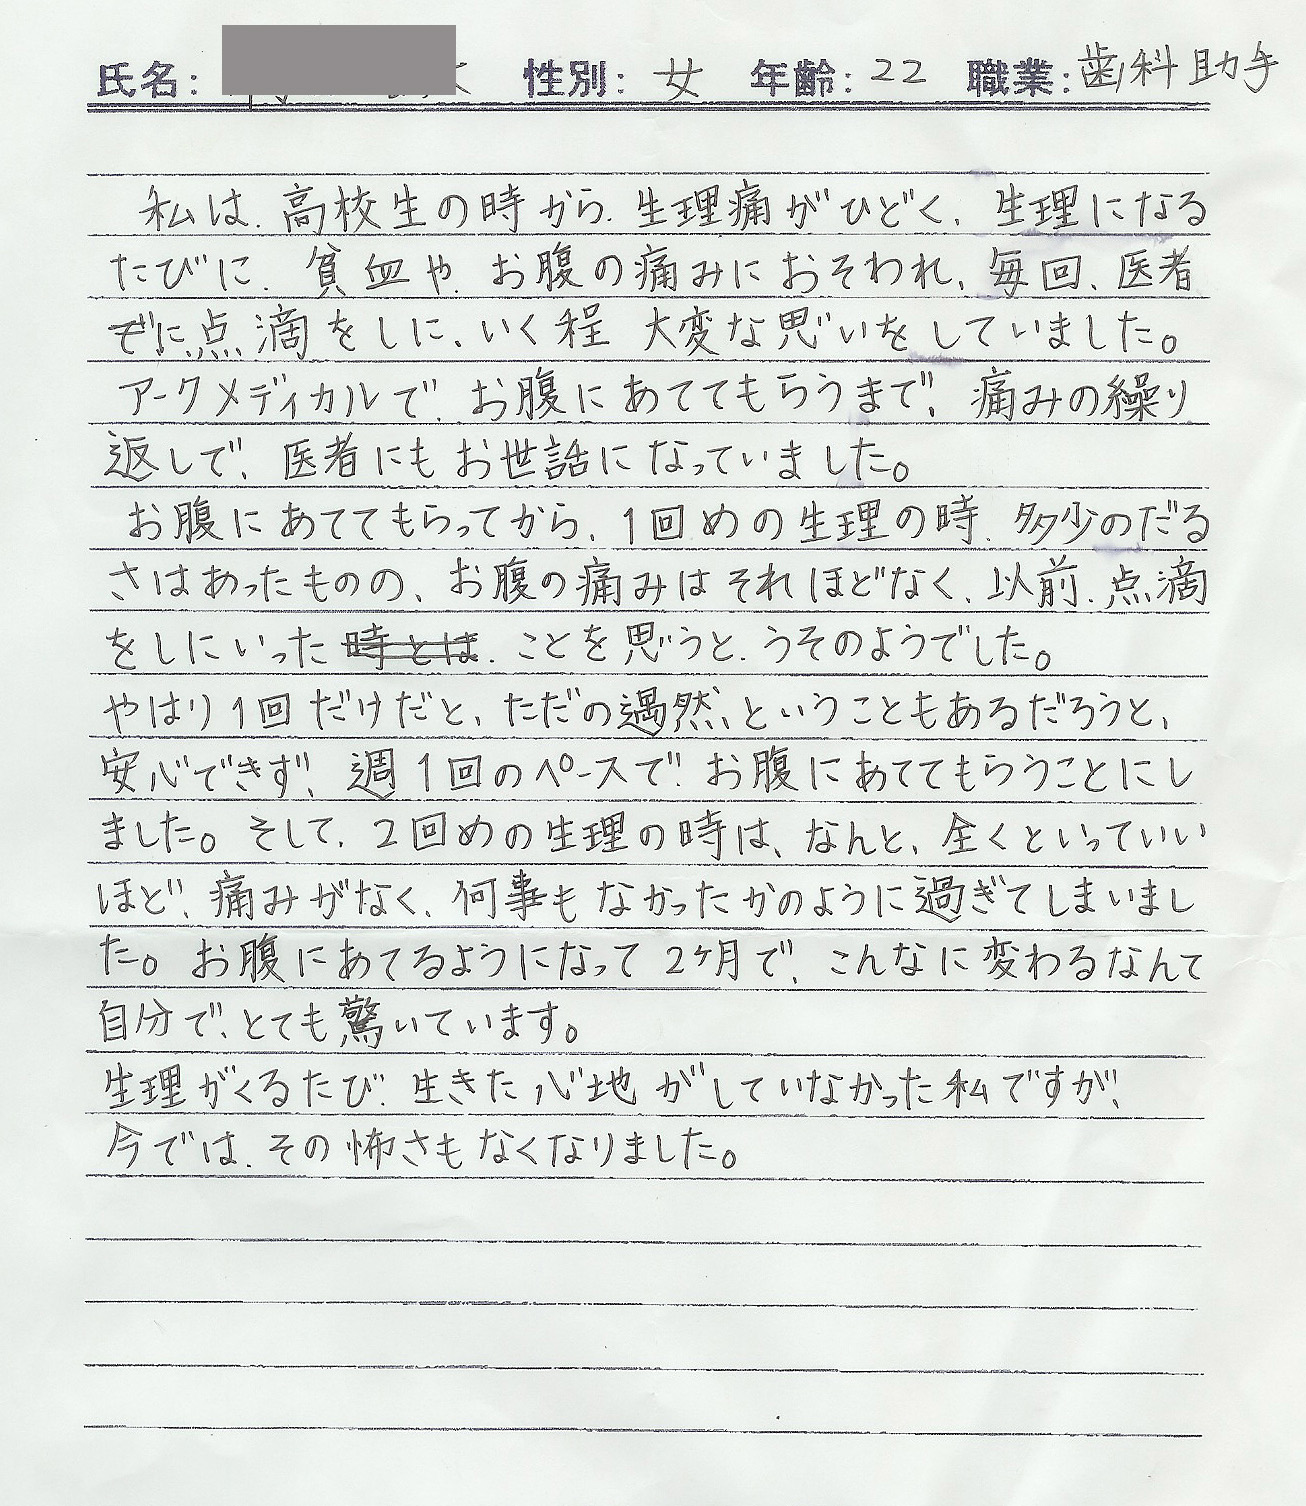 氏名: 性別: 女 年齢: 22 職業: 歯科助手
私は、高校生の時から、生理痛がひどく、生理になる
たびに、貧血や、お腹の痛みにおそわれ、毎回、医者
に、点滴をしに、いく程 大変な思いをしていました。
アークメディカルで、お腹にあててもらうまで、痛みの繰り
返しで、医者にもお世話になっていました。
お腹にあててもらってから、1回めの生理の時、多少のだる
さはあったものの、お腹の痛みはそれほどなく、以前、点滴
をしにいった時とは、ことを思うと、うそのようでした。
やはり1回だけだと、ただの遇然、ということもあるだろうと、
安心できず、週1回のペースで、お腹にあててもらうことにし
ました。そして、2回めの生理の時は、なんと、全くといっていい
ほど、痛みがなく、何事もなかったかのように過ぎてしまいまし
た。お腹にあてるようになって2ヶ月で、こんなに変わるなんて
自分で、とても驚いています。
生理がくるたび、生きた心地がしていなかった私ですが、
今では、その怖さもなくなりました。